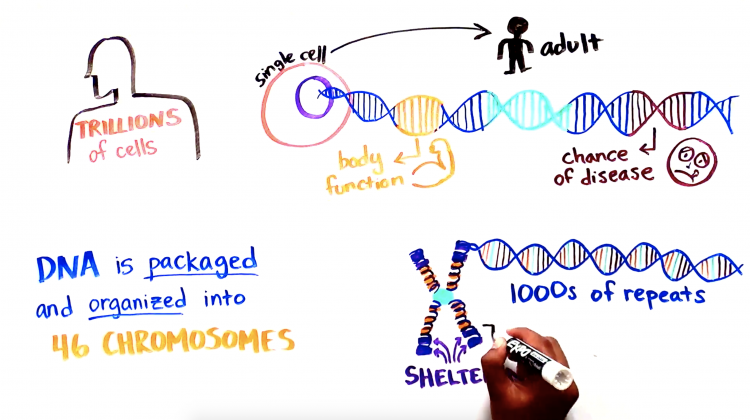 TRILLIONS
of cells
single cell
adult
body
function
chance
of disease
DNA is packaged
and organized into
46 CHROMOSOMES
1000s of repeats
SHELTE
EXPO